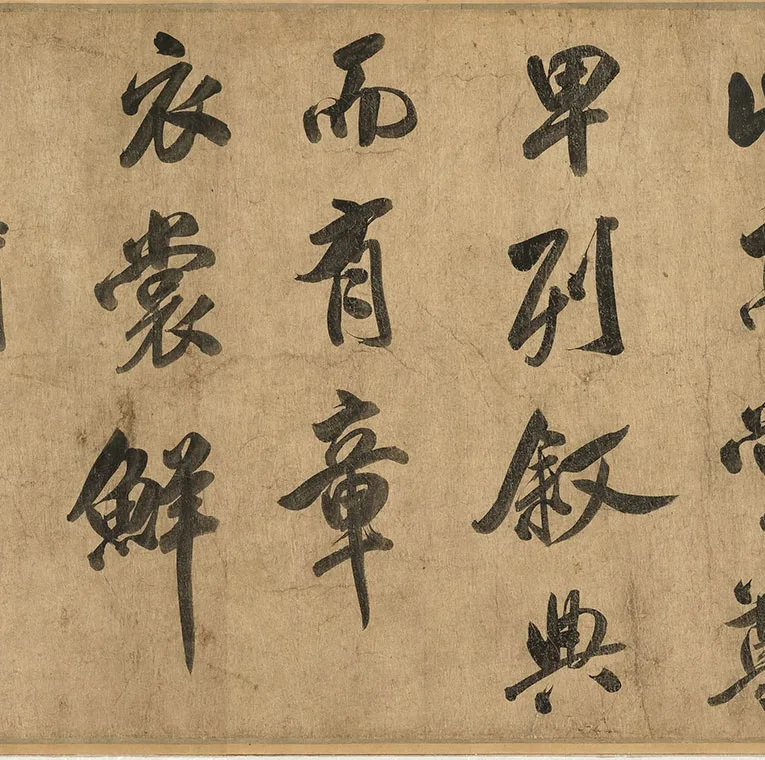 卑列叙典
而有章
衣裳鮮